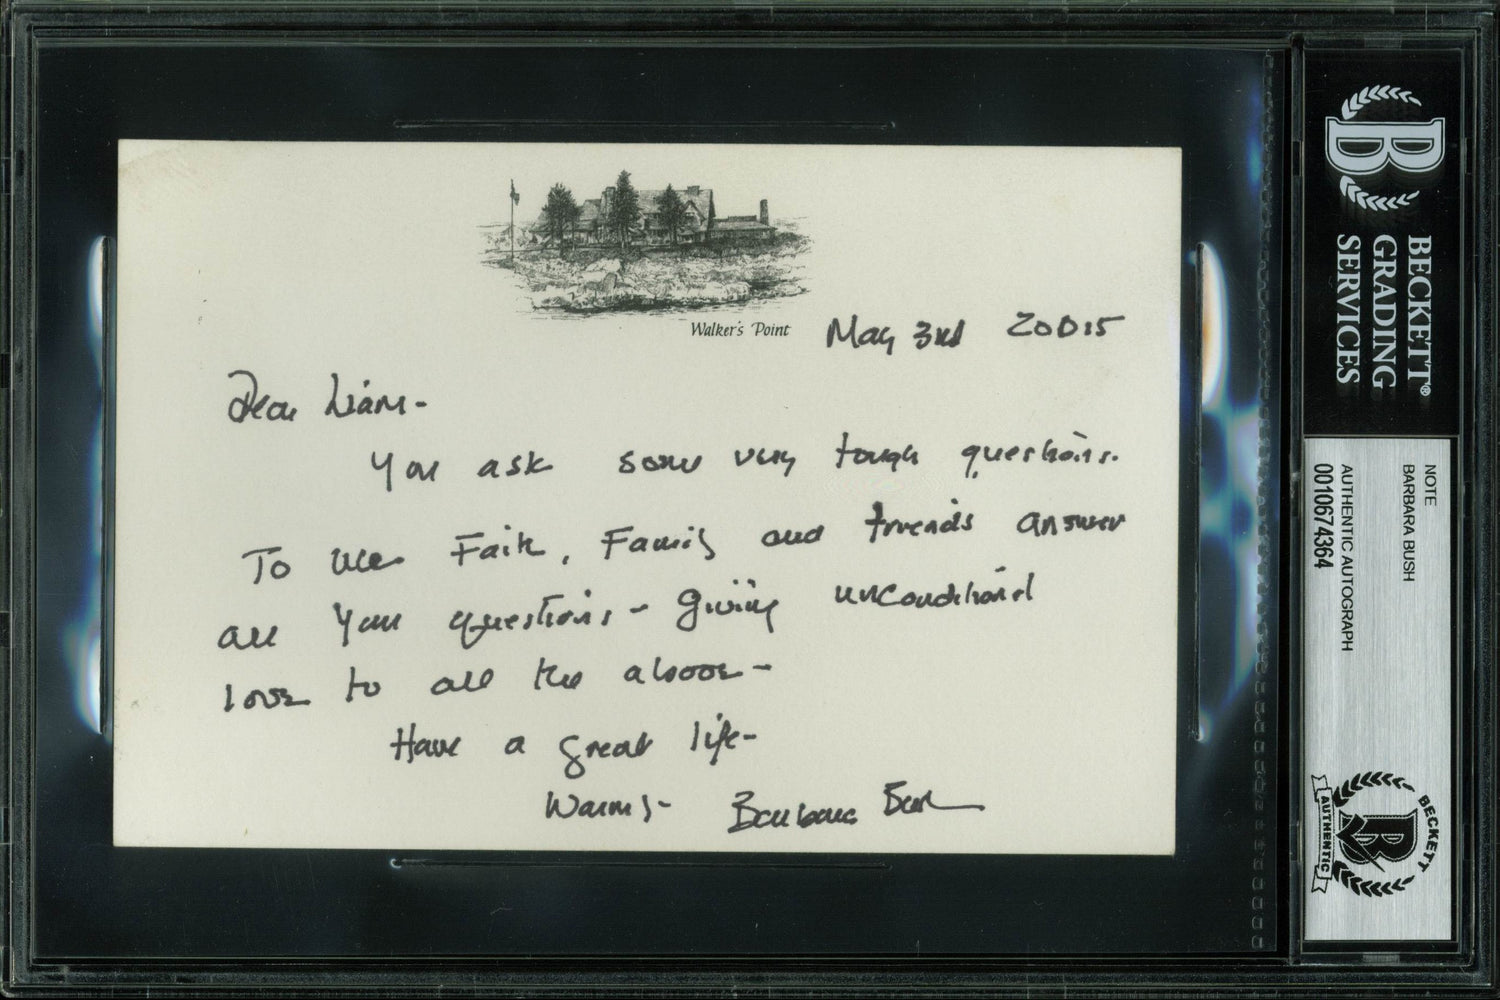 Walker's Point
May 3rd 20015
Dear Liam-
You ask some very tough questions.
To me Faith, Family and friends answer
all your questions - giving unconditional
love to all the above -
Have a great life-
Warmly- Barbara Bush
BECKETT®
GRADING
SERVICES
NOTE
BARBARA BUSH
AUTHENTIC AUTOGRAPH
0010674364
BECKETT
AUTHENTIC